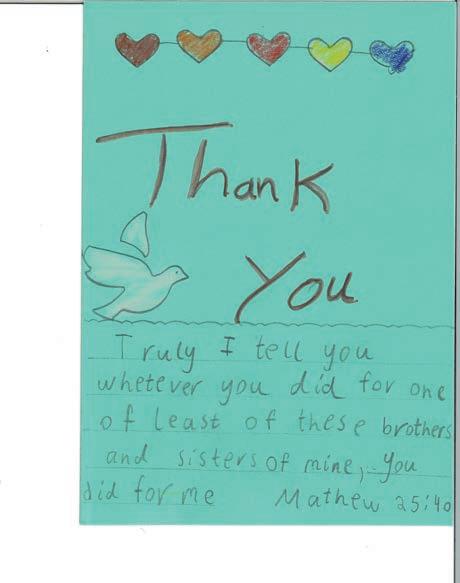 Thank
You
Truly I tell you
whetever you did for one
of least of these brothers
and sisters of mine, you
did for me Mathew 25:40